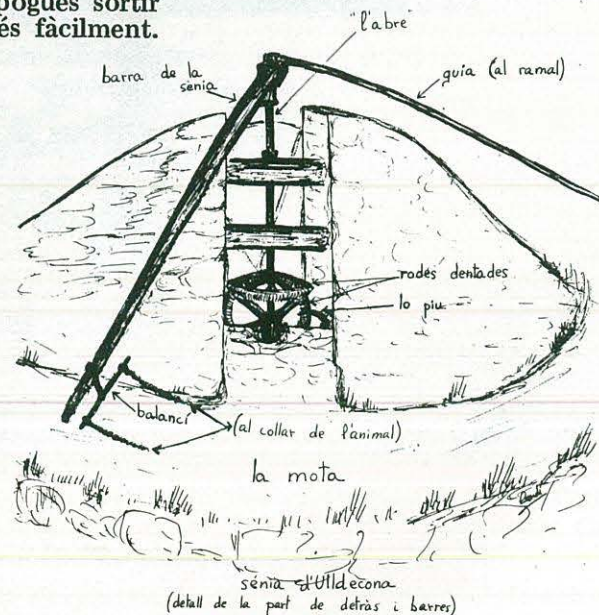 pogués sortir
és fàcilment.
l'abre
barra de la
sénia
guia (al ramal)
rodes dentades
lo piu
balancí
(al collar de l'animal)
la mota
sénia d'Ulldecona
(detall de la part de detràs i barres)